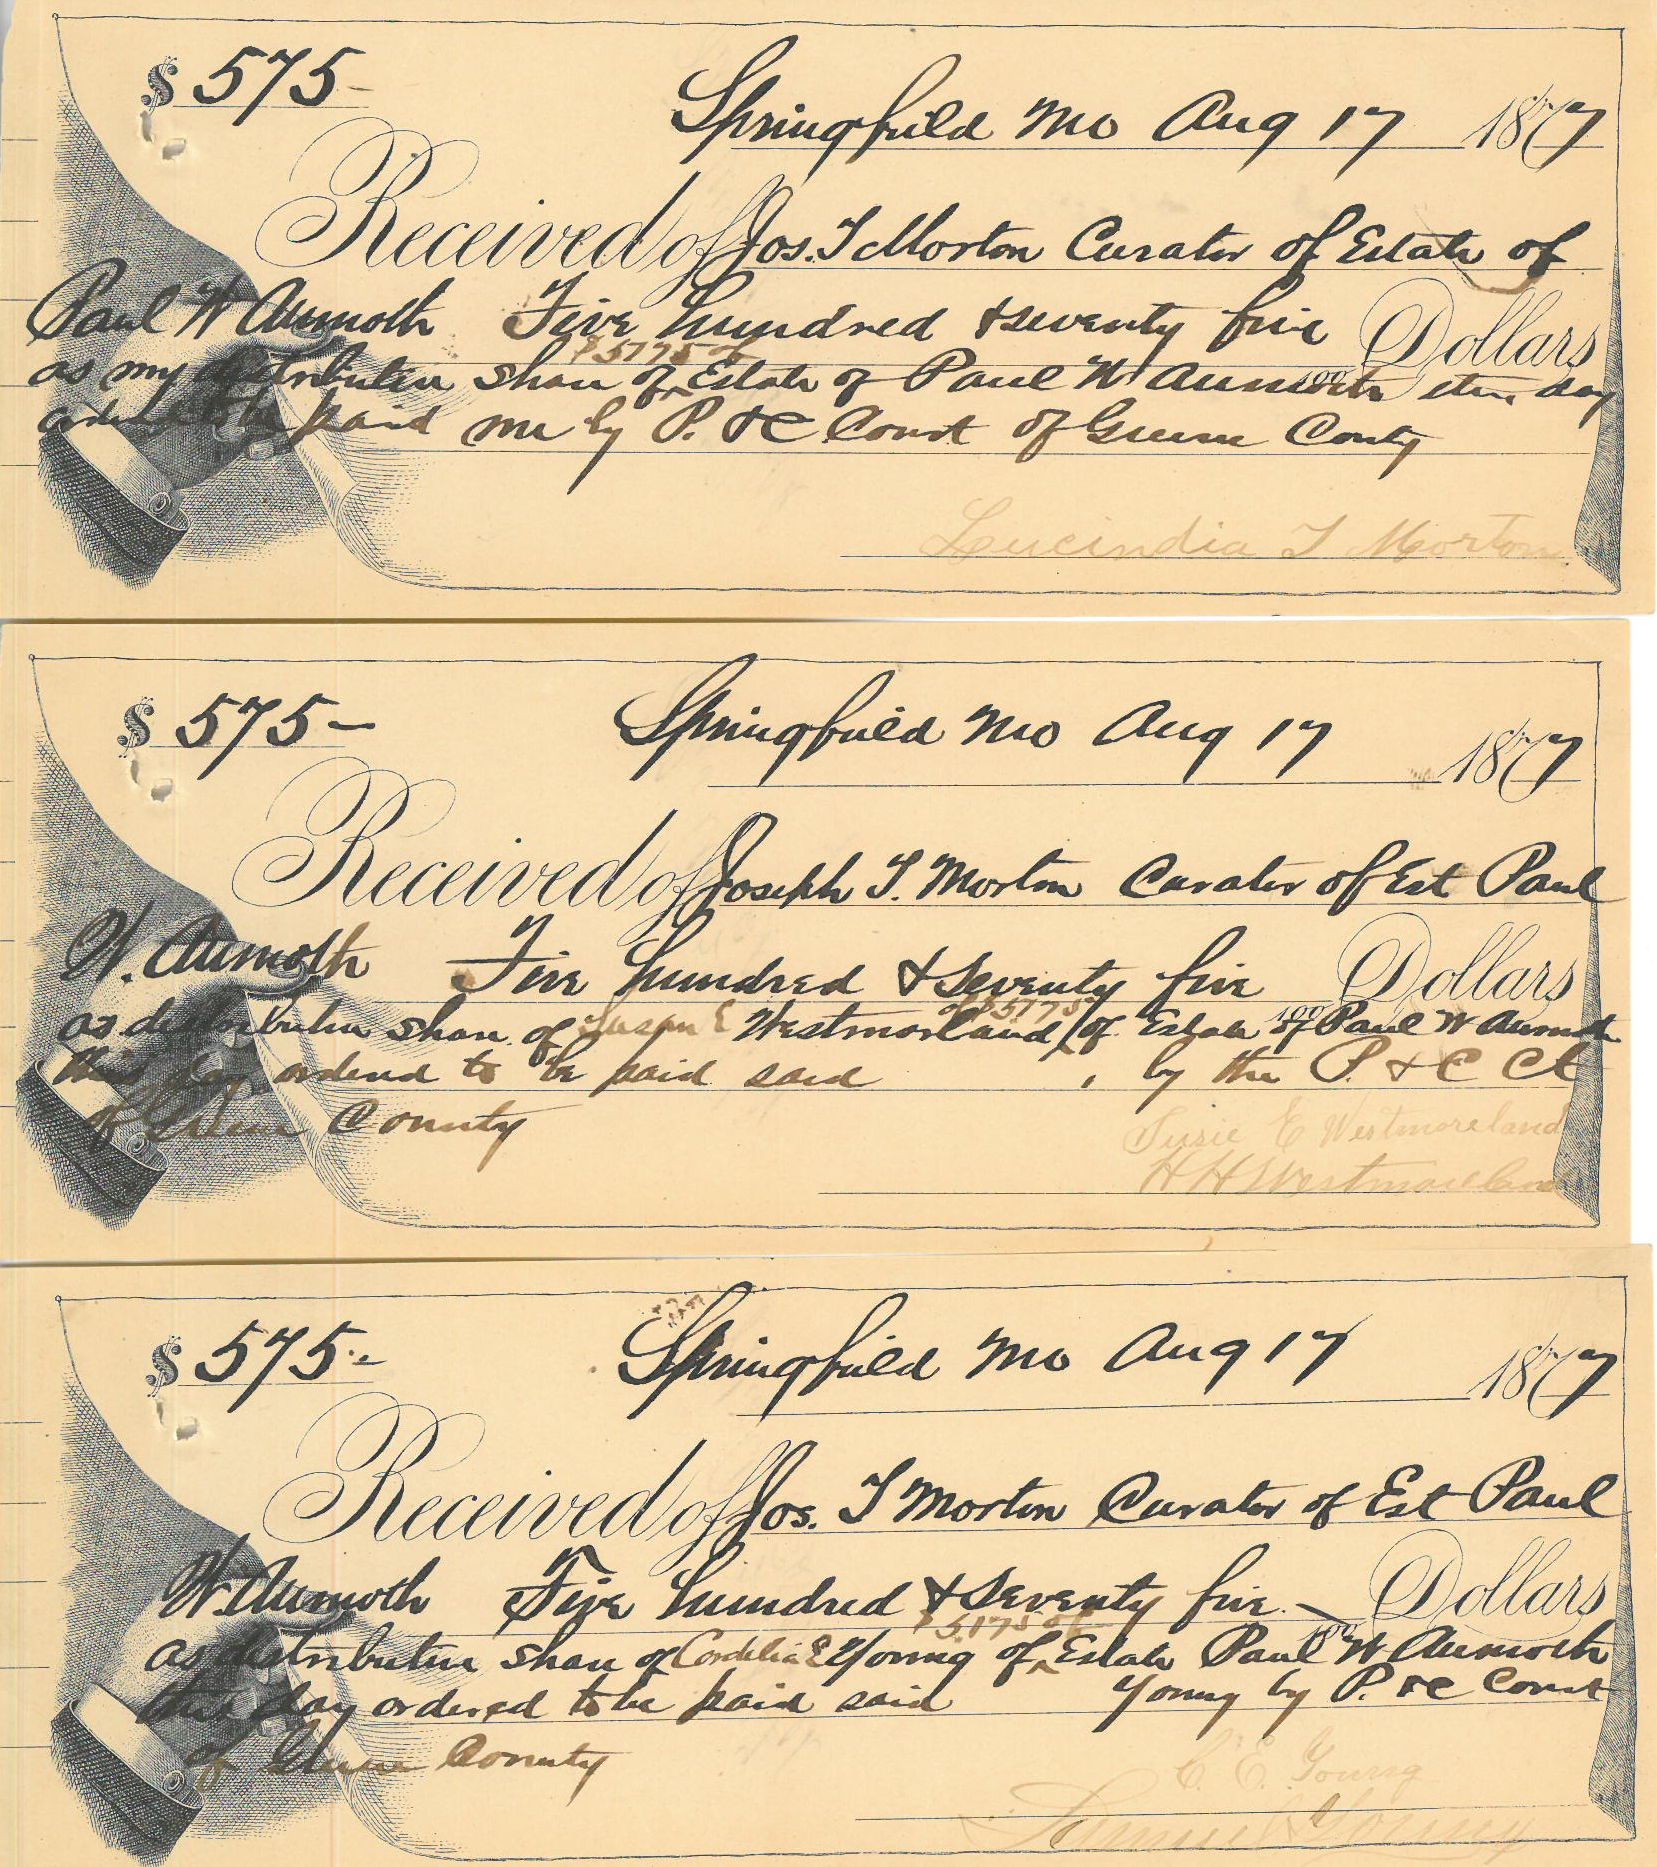 $ 575-
Springfield Mo Aug 17 1877
Received of Jos. T Morton Curator of Estate of
Paul W Aumoth Five hundred & seventy five Dollars
$5775 of
as my distributive share of ^ Estate of Paul W Aumoth this day
ordered to be paid me by P. & C Court of Greene County
Lucindia T Morton
$ 575-
Springfield Mo Aug 17 1877
Received of Joseph T. Morton Curator of Est Paul
W. Aumoth Five hundred & seventy five Dollars
of $5775
as distributive share of Susan E Westmorland of Estate of Paul W Aumoth
this day ordered to be paid said , by the P. & C Ct
of Greene County
Susie E Westmoreland
H H Westmoreland
$ 575.-
Springfield Mo Aug 17 1877
Received of Jos. T Morton Curator of Est Paul
W. Aumoth Five hundred & seventy five - Dollars
$5.775 of
as distributive share of Cordelia E Young of ^ Estate Paul W Aumoth
this day ordered to be paid said Young by P. & C Court
of Greene County
C. E. Young
Young